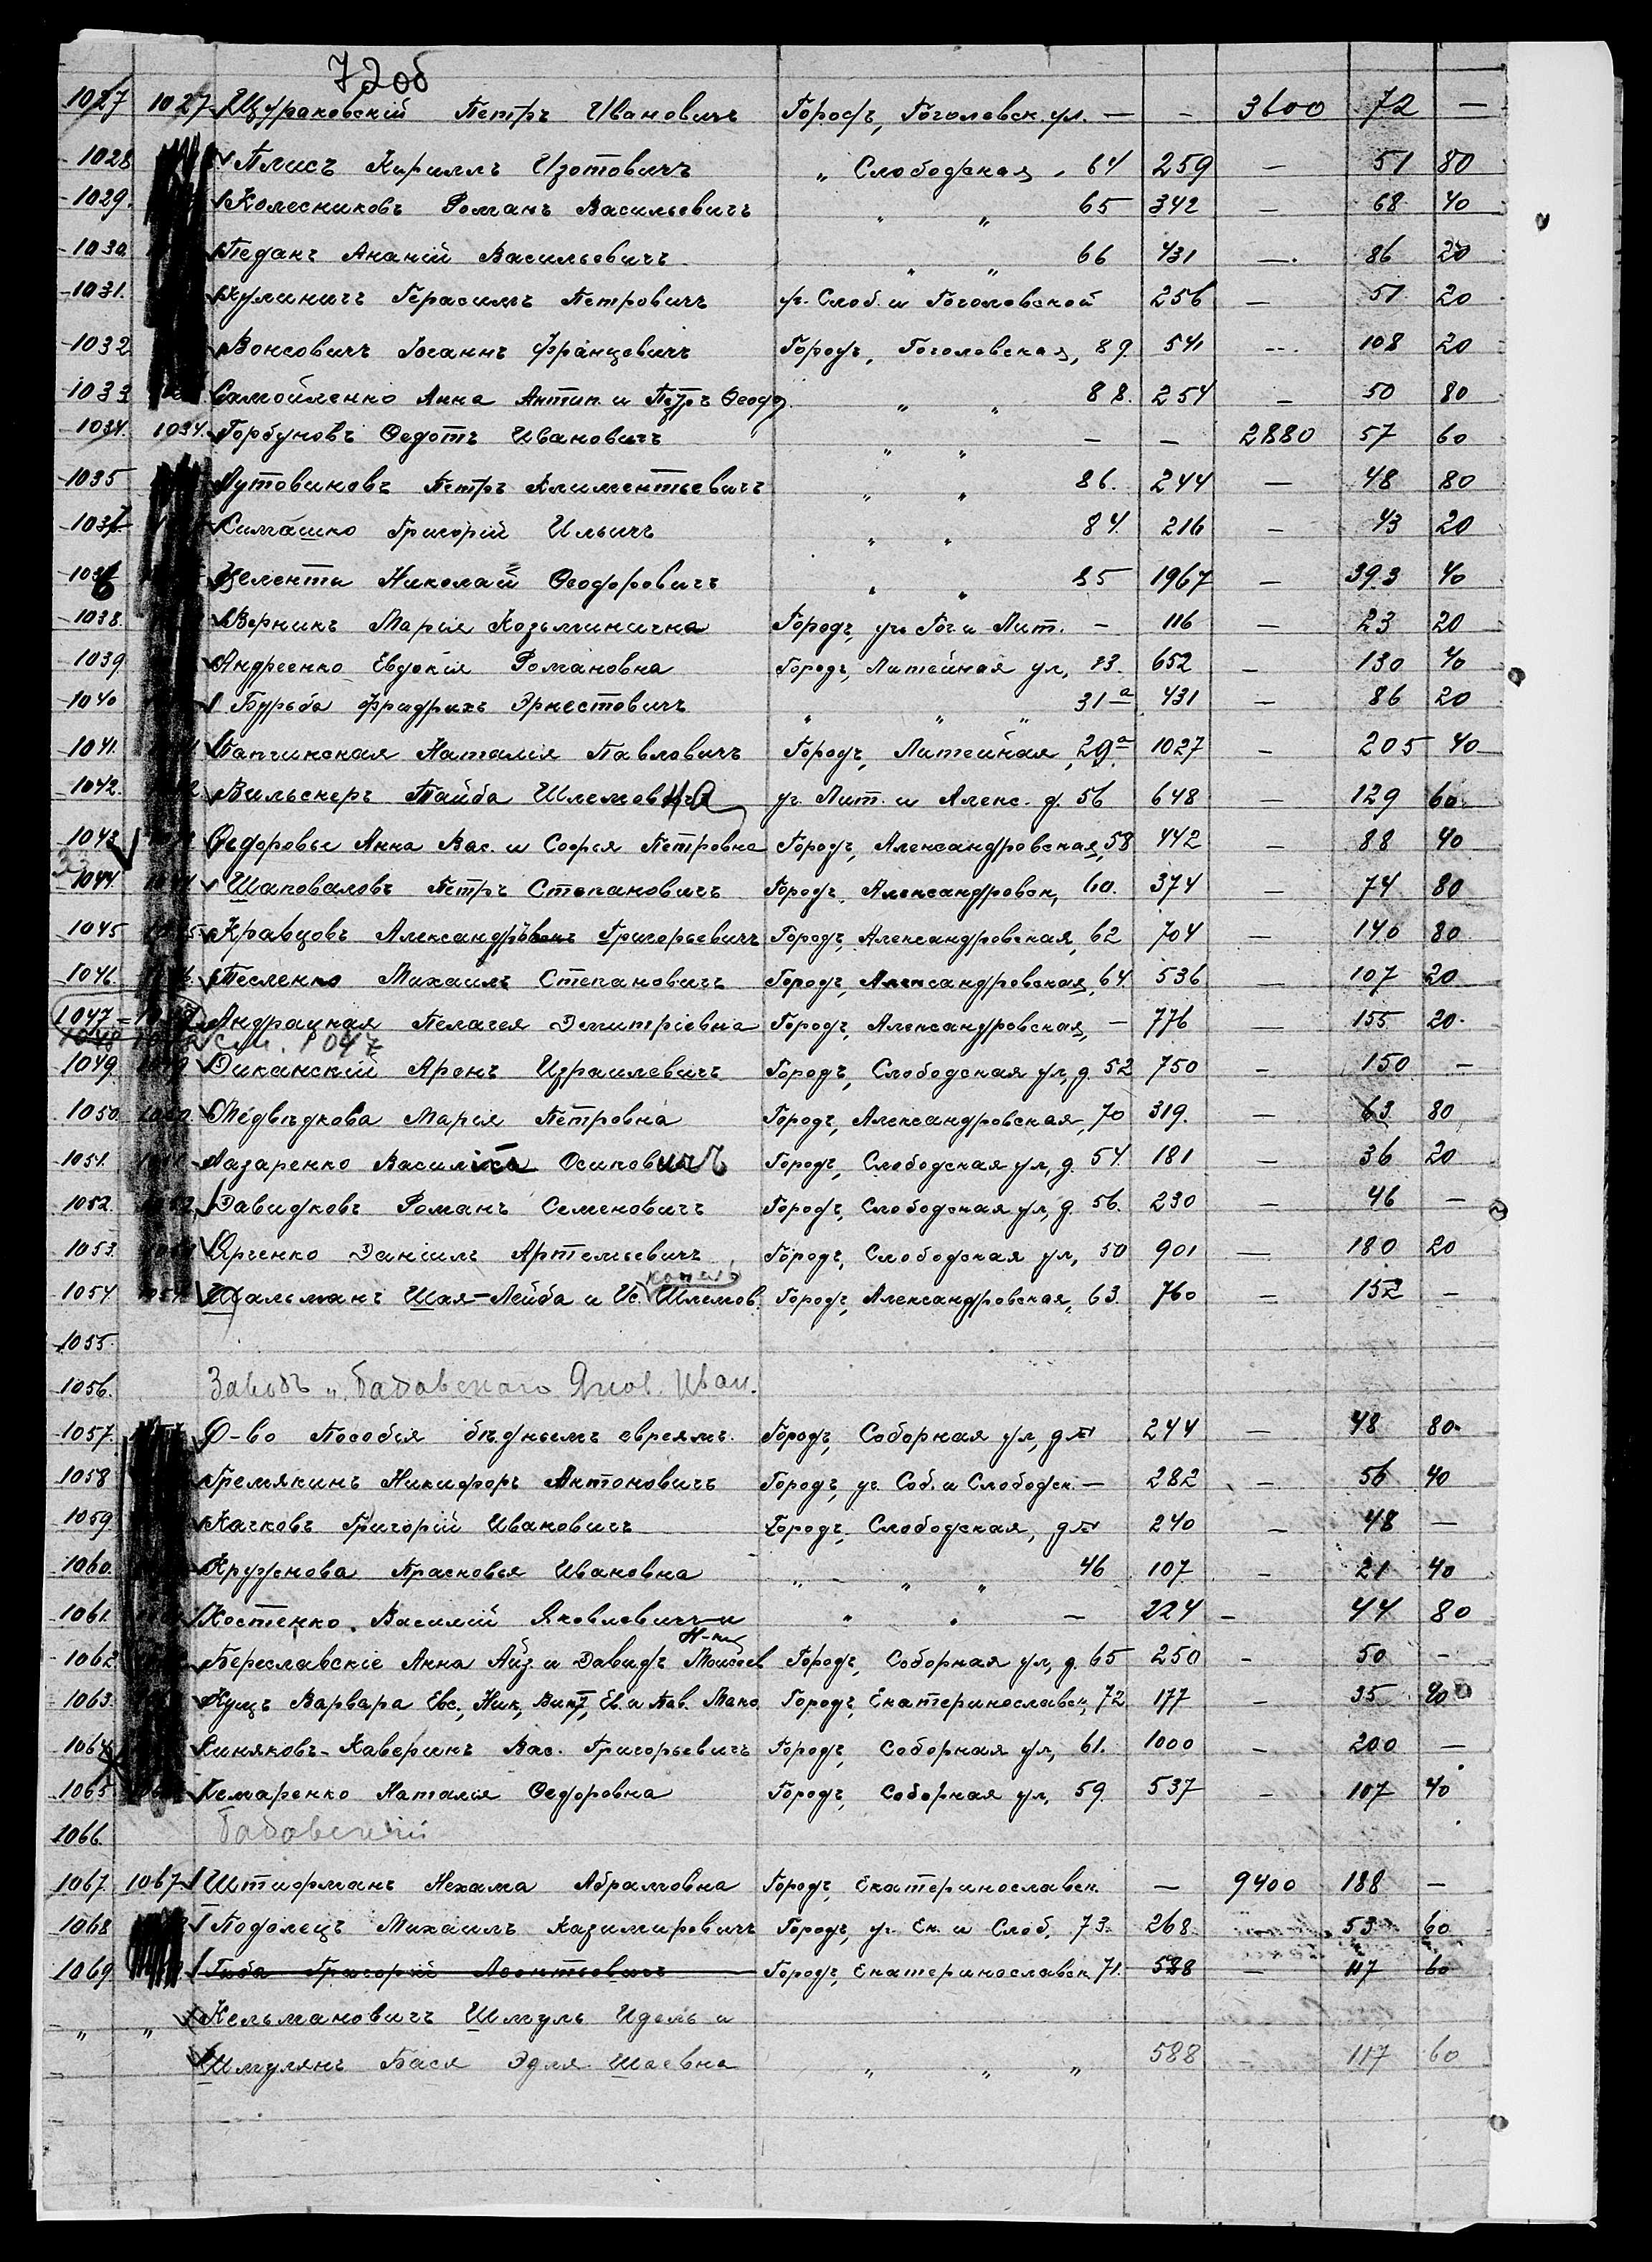 72об
1027 1027 Щураковскій Петръ Ивановичъ Городъ, Гоголевск. ул. — - 3600 72 —
1028 Плисъ Кириллъ Изотовичъ " Слободская, 64 259 — 51 80
1029. Колесниковъ Романъ Васильевичъ " " 65 342 — 68 40
1030. Педанъ Ананій Васильевичъ " " 66 431 — 86 20
1031. Кулиничъ Герасимъ Петровичъ уг. Слоб. и Гоголевской 256 — 51 20
1032 Вонсовичъ Іоаннъ Францевичъ Городъ, Гоголевская, 89. 541 — 108 20
1033 Самойленко Анна Антип. и Петръ Ѳеод. " " 88. 254 — 50 80
1034. 1034. Горбуновъ Ѳедотъ Ивановичъ " " — — 2880 57 60
1035 Лутовиновъ Петръ Климентьевичъ " " 86. 244 — 48 80
Симашко Григорій Ильичъ " " 84. 216 — 43 20
Целенти Николай Ѳеодоровичъ " " 85 1967 — 393 40
1038. Верникъ Марія Козьминична Городъ, уг. Гог. и Лит. — 116 — 23 20
1039. Андреенко Евдокія Романовна Городъ, Литейная ул, 23. 652 — 130 40
1040 Бурьба Фридрихъ Эрнестовичъ " " " 31а 431 — 86 20
1041. Папчинская Наталія Павловичъ Городъ, Литейная, 29а 1027 — 205 40
1042. Вильскеръ Тайба Шлемовна уг. Лит. и Алекс. д. 56 648 — 129 60
1043 Ѳедоровы Анна Вас. и Софья Петровна Городъ, Александровская, 58 442 — 88 40
1044 Шаповаловъ Петръ Степановичъ Городъ, Александровск, 60. 374 — 74 80
1045 Кравцовъ Григорьевичъ Городъ, Александровская, 62 704 — 140 80
1046. Тесленко Михаилъ Степановичъ Городъ, Александровская, 64 536 — 107 20
1047 = Пелагея Дмитріевна Городъ, Александровская, — 776 — 155 20
1048 см. 1047
1049 Диканскій Аронъ Израилевичъ Городъ, Слободская ул, д. 52 750 — 150 —
1050. Медвѣдкова Марія Петровна Городъ, Александровская, 70 319. — 63 80
1051. Лазаренко Осиповичъ Городъ, Слободская ул, д. 54 181 — 36 20
1052. Давидковъ Романъ Семеновичъ Городъ, Слободская ул, д. 56. 230 — 46 —
1053. Ярченко Даніилъ Артемьевичъ Городъ, Слободская ул, 50 901 — 180 20
1054 Шальманъ Шая-Лейба и Ис. Шлемов. Городъ, Александровская, 63. 760 — 152 —
1055.
1056. Заводъ "Бабовскаго Яков. Иван.
1057. О-во Пособія бѣднымъ евреямъ. Городъ, Соборная ул, 244 — 48 80
1058 Гремякинъ Никифоръ Антоновичъ Городъ, уг. Соб. и Слободск. — 282 — 56 40
1059 Качковъ Григорій Ивановичъ Городъ, Слободская, 240 — 48 —
1060. Кружнова Прасковья Ивановна " " " 46 107 — 21 40
1061. Костенко Василій Яковлевичъ " " — 224 — 44 80
Н-ки
1062 Береславскіе Анна Айз и Давидъ Моисеев Городъ, Соборная ул, д. 65 250 — 50 —
1063. Кущъ Варвара Евс., Ник, Викт, Ев. и Пав. Мако Городъ, Екатеринославск, 72 177 — 35 40
1064 Синяковъ-Каверинъ Вас. Григорьевичъ Городъ, Соборная ул, 61. 1000 — 200 —
1065 Комаренко Наталія Ѳедоровна Городъ, Соборная ул, 59 537 — 107 40
1066. Бабовскій
1067. 1067 Штифманъ Нехама Абрамовна Городъ, Екатеринославск. — 9400 188 —
1068 Подолецъ Михаилъ Казимировичъ Городъ, уг. Ек. и Слоб. 73. 268 53 60
1069 Григорій Леонтьевичъ Городъ, Екатеринославск. 71. 588 — 117 60
" " Кельмановичъ Шмуль Идель и
Шмулянъ Бася Эдля Шаевна " " " 588 — 117 60